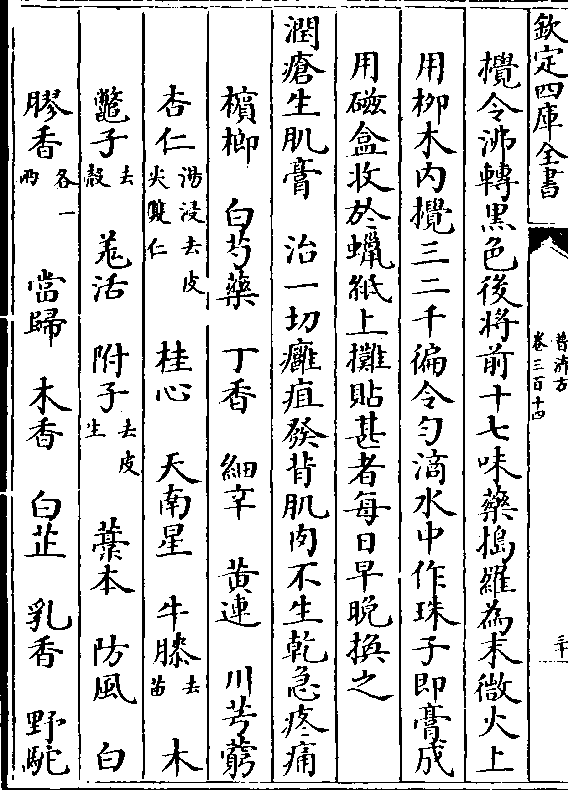 欽定四庫全書
普濟方
卷三百十四
三十
攪令沸轉黒色後將前十七味藥搗羅為末㣲火上
用柳木内攪三二千徧令匀滴水中作珠子即膏成
用磁盒收於蠟紙上攤貼甚者每日早晚換之
潤瘡生肌膏　治一切癰疽發背肌肉不生乾急疼痛
檳榔　白芍藥　丁香　細辛　黄連　川芎藭
杏仁湯浸去皮尖雙仁　桂心　天南星　牛膝去苗　木
鼈子去殻　羗活　附子去皮生　藁本　防風　白
膠香各一兩　當歸　木香　白芷　乳香　野駝